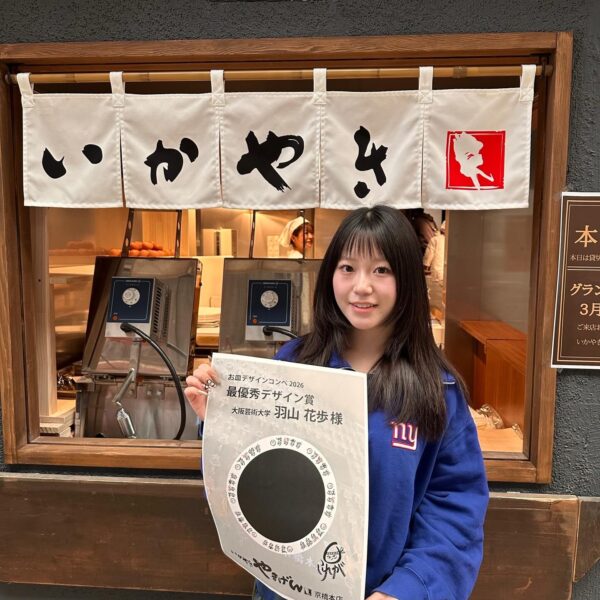 いかやき
本
本日は貸切
グラン
3月
ご来店お
いかやき
ny
お皿デザインコンペ2026
最優秀デザイン賞
大阪芸術大学 羽山 花歩 様
京橋本店